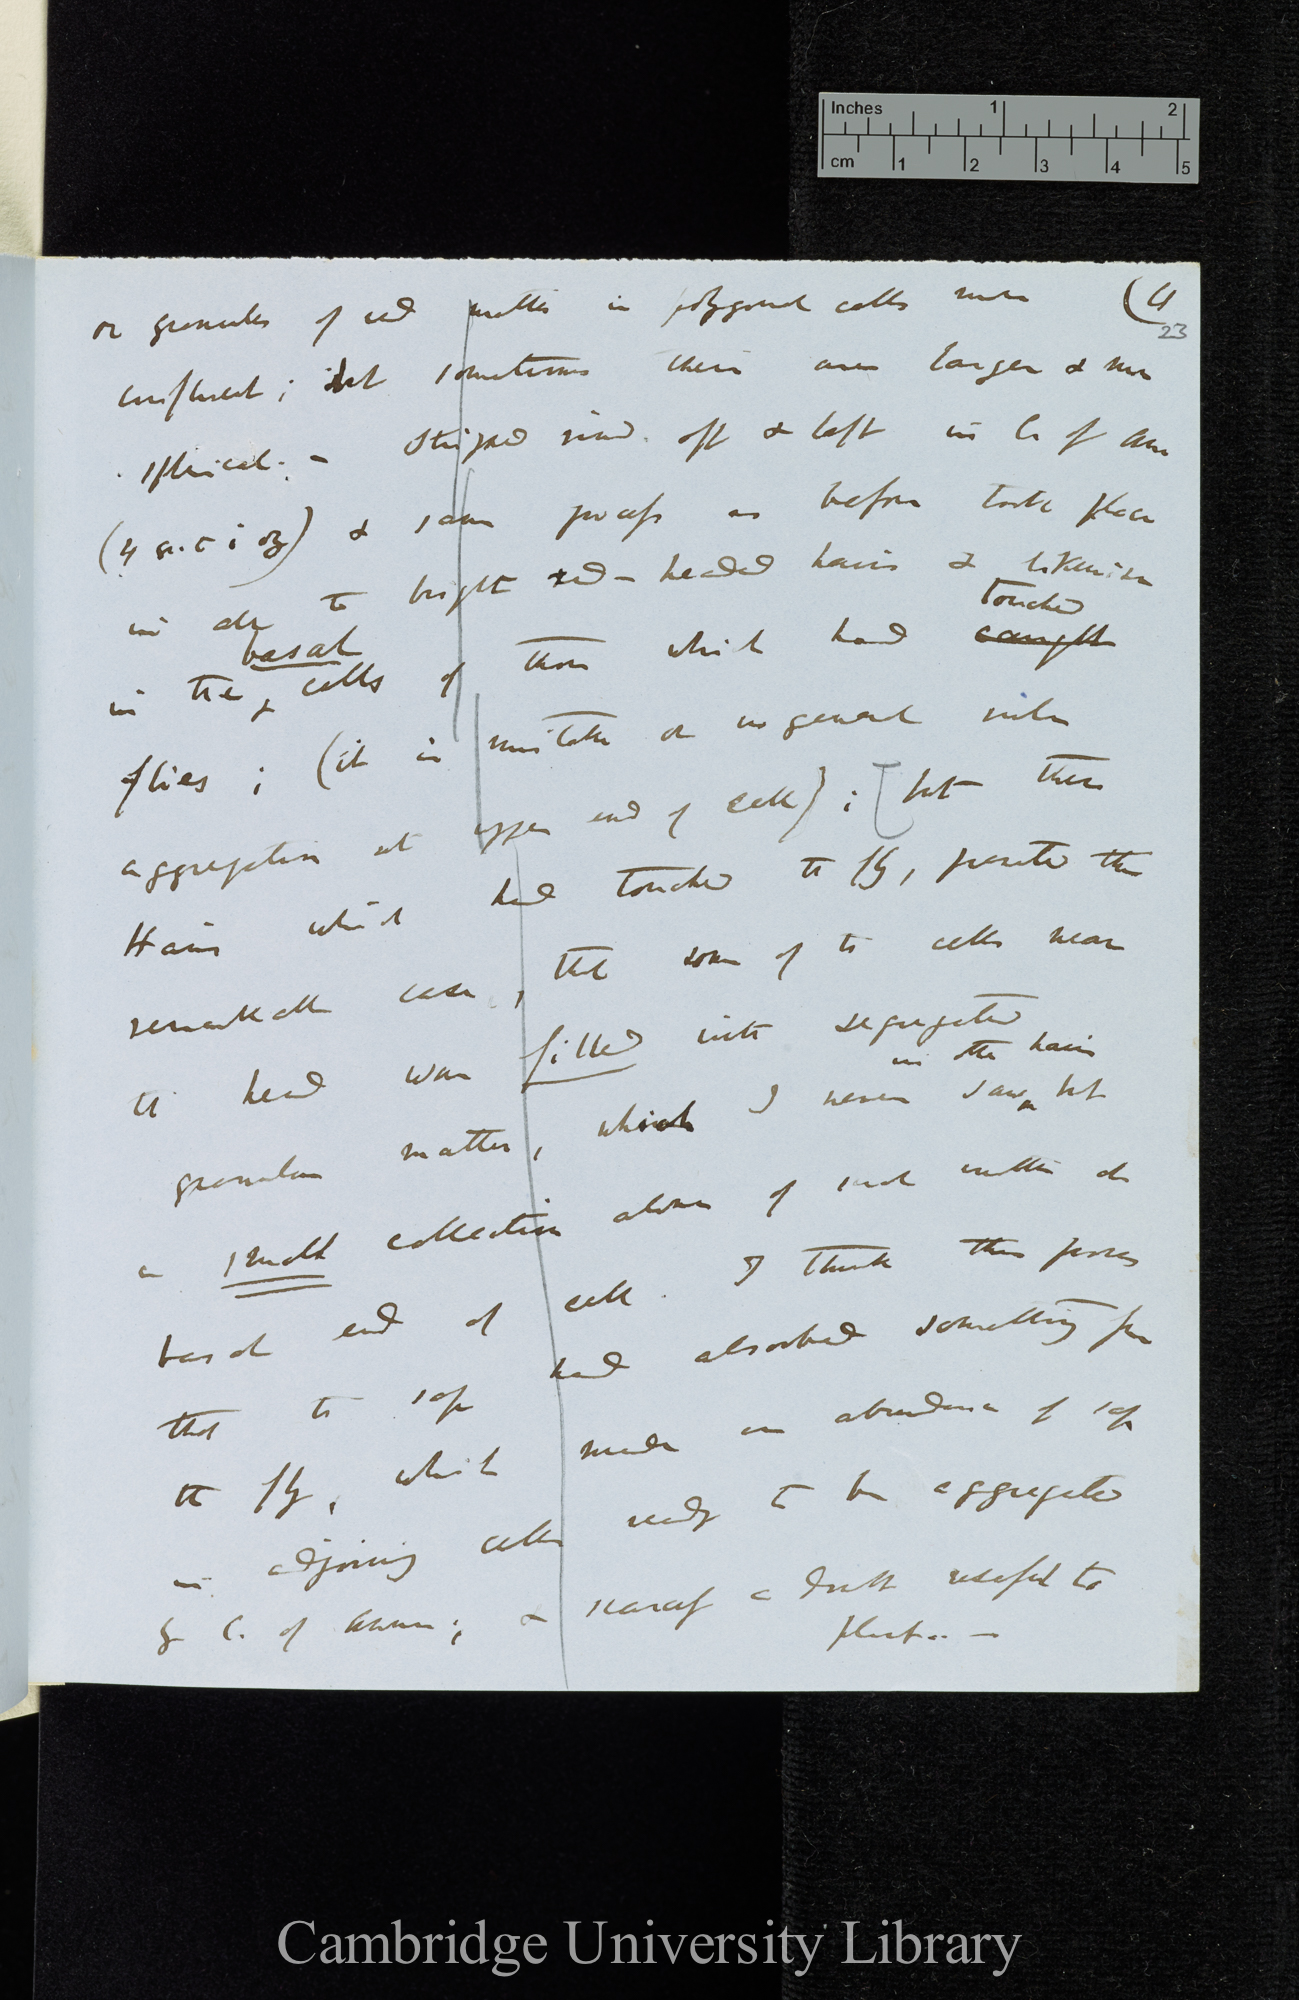 Inches 1 2
cm 1 2 3 4 5
(4
23
or granules of red matter in polygonal cells more
confluent; but sometimes there are larger & more
spherical. — Stripped rind off & left in C. of Am
(4 gr. to i oz) & same process as before took place
in all to bright red-headed hairs & likewise
touched
in the basal cells of those which had caught
flies; (it is mistake or no general rule
aggregation at upper end of cell); [but these
Hairs which had touched the fly, presented the
remarkable case, that some of the cells near
the head were filled with segregated
in the hairs
granular matter, which I never saw, but
a small collection alone of such matter at
basal end of cell. I think this proves
that the sap had absorbed something from
the fly, which made an abundance of sap
in adjoining cells ready to be aggregated
by C. of Ammon; & scarcely a doubt useful to
plant. —
Cambridge University Library